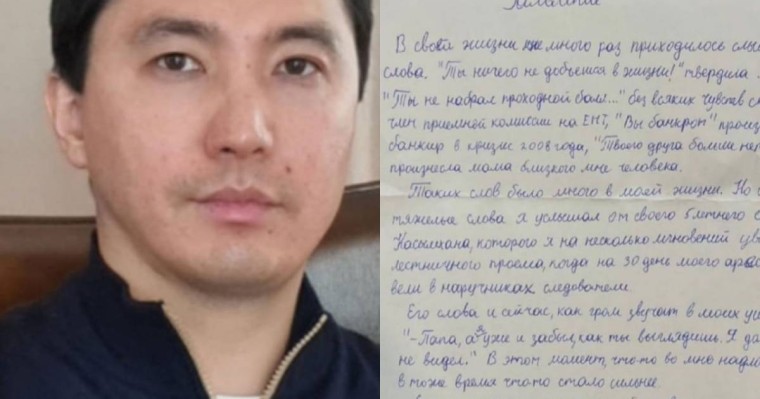 В своей жизни мне много раз приходилось
слова. "Ты ничего не добьешься в жизни!" твердила
"Ты не набрал проходной балл..." без всяких чувств
член приемной комиссии на ЕНТ, "Вы банкрот"
банкир в кризис 2008 года, "Твоего друга больше
произнесла мама близкого мне человека.
Таких слов было много в моей жизни. Но
тяжелые слова я услышал от своего
которого я на несколько мгновений
лестничного проема, когда на 30 день моего
вели в наручниках следователи.
Его слова и сейчас, как гром звучит в моих
"-Папа, а я уже и забыл, как ты выглядишь. Я
не видел." В этот момент, что-то во мне
в тоже время что-то стало сильнее.